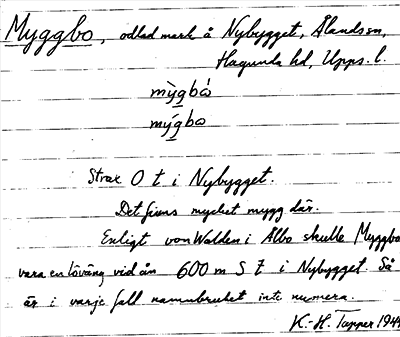 Myggbo, odlad mark å Nybygget, Ålands sn,
Hagunda hd, Upps. l.
mỳgbò
mýgbo
Strax O t i Nybygget.
Det finns mycket mygg där.
Enligt von Walden i Ålbo skulle Myggbo
vara en löväng vid ån 600 m S t i Nybygget. Så
är i varje fall namnbruket inte numera.
K.-H. Tapper 194